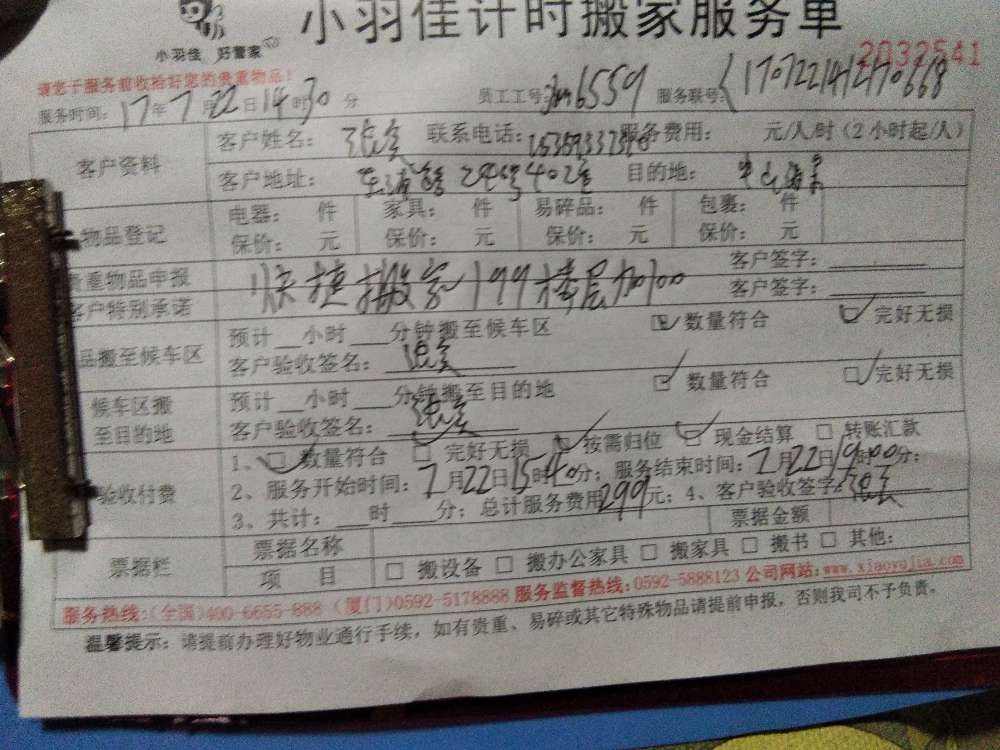 小羽佳计时搬家服务单
小羽佳 好管家
2032541
请您于服务前收拾好您的贵重物品!
服务时间: 17年7月22日14时30分 员工工号: 6559 服务联号: 170722141270668
客户资料
客户姓名: 联系电话: 服务费用: 元/人/时(2小时起/人)
客户地址: 目的地:
物品登记
电器: 件 家具: 件 易碎品: 件 包裹: 件
保价: 元 保价: 元 保价: 元 保价: 元
贵重物品申报 客户签字:
客户特别承诺 快捷搬家199楼层加100 客户签字:
品搬至候车区
预计 小时 分钟搬至候车区 数量符合 完好无损
客户验收签名:
候车区搬至目的地
预计 小时 分钟搬至目的地 数量符合 完好无损
客户验收签名:
验收付费
1、□数量符合 □完好无损 □按需归位 □现金结算 □转账汇款
2、服务开始时间: 7月22日15时40分; 服务结束时间: 7月22日19时00分;
3、共计: 时 分; 总计服务费用299元; 4、客户验收签字:
票据栏
票据名称 票据金额
项 目 □搬设备 □搬办公家具 □搬家具 □搬书 □其他:
服务热线:(全国)400-6655-888 (厦门)0592-5178888 服务监督热线:0592-5888123 公司网站:www.xiaoyujia.com
温馨提示: 请提前办理好物业通行手续, 如有贵重、易碎或其它特殊物品请提前申报, 否则我司不予负责。